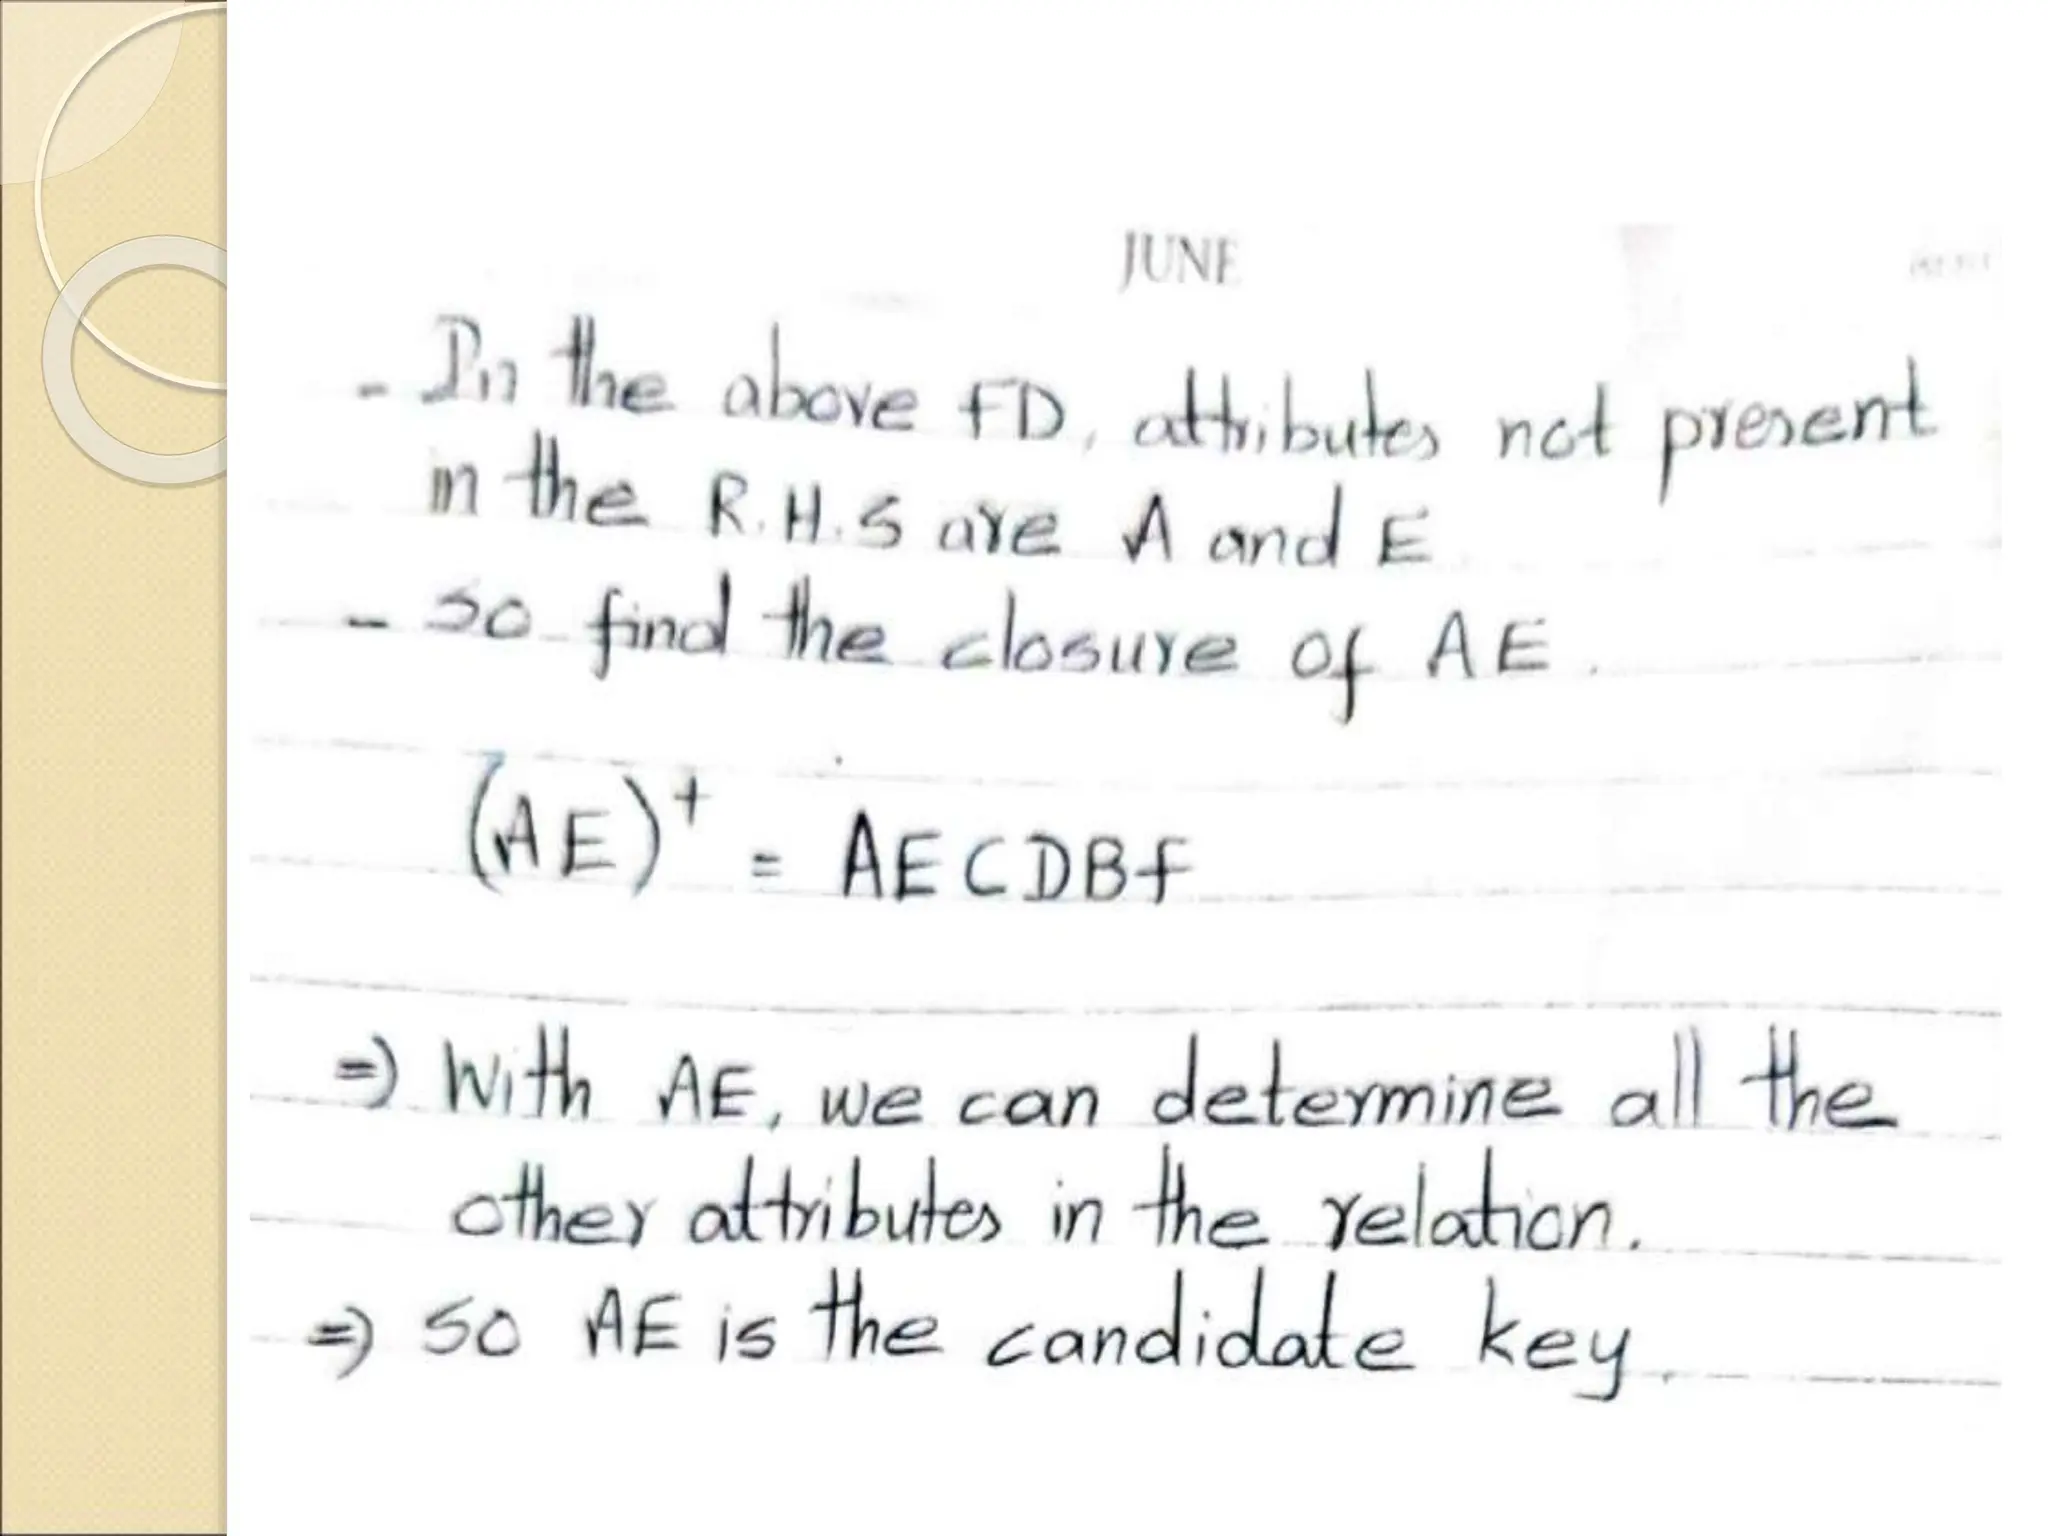 JUNE
- In the above FD, attributes not present
in the R.H.S are A and E
- So find the closure of AE.
(AE)⁺ = AECDBF
=) With AE, we can determine all the
other attributes in the relation.
=) So AE is the candidate key.